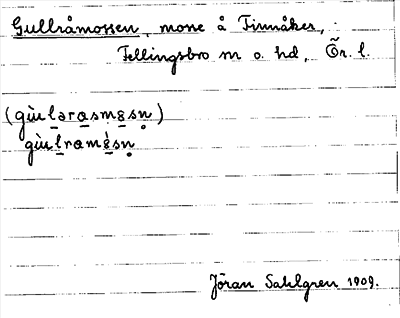 Gullråmossen, mosse å Finnåker,
Fellingsbro sn o. hd, Ör. l.
(gùlərasmɛsn̥)
gùlramɛ̀sn̥
Jöran Sahlgren 1909.